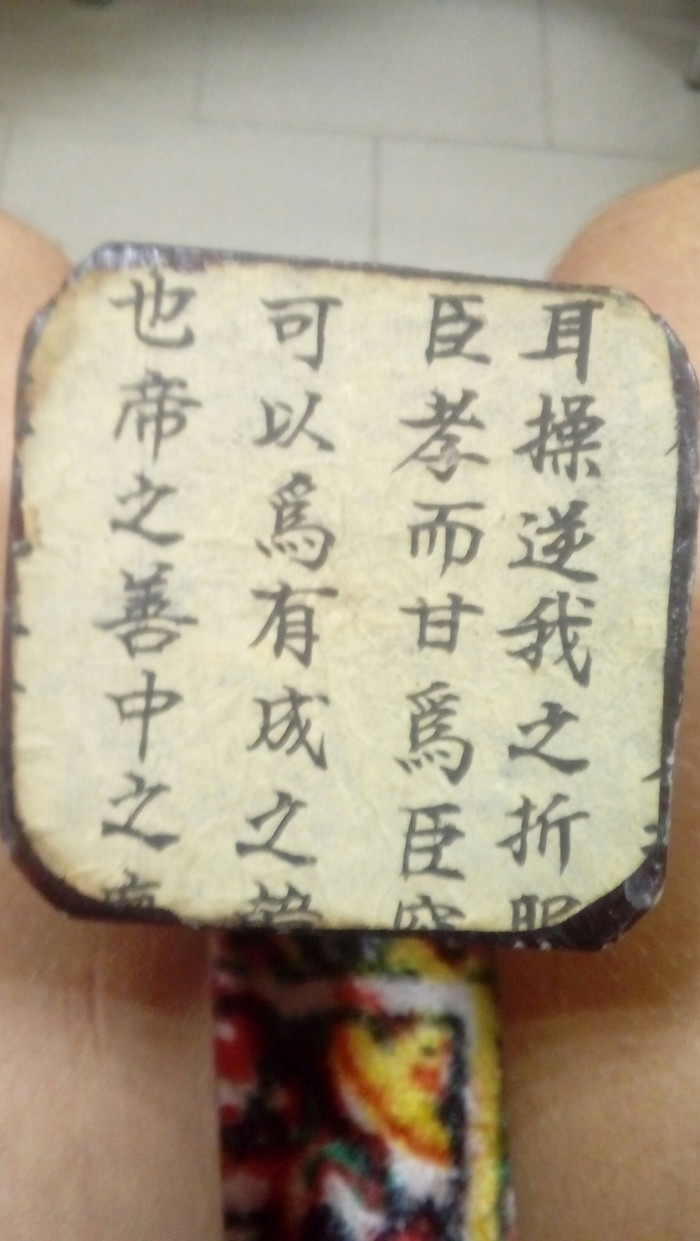 耳操逆我之折
臣孝而甘爲臣
可以爲有成之
也帝之善中之